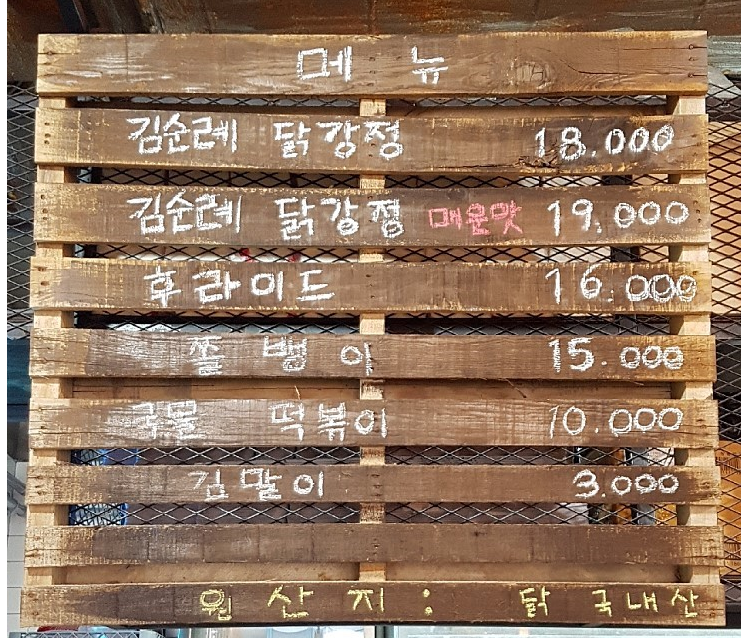 메뉴
김순례 닭강정 18.000
김순례 닭강정 매운맛 19.000
후라이드 16.000
쫄뱅이 15.000
국물 떡볶이 10.000
김말이 3.000
원산지: 닭 국내산